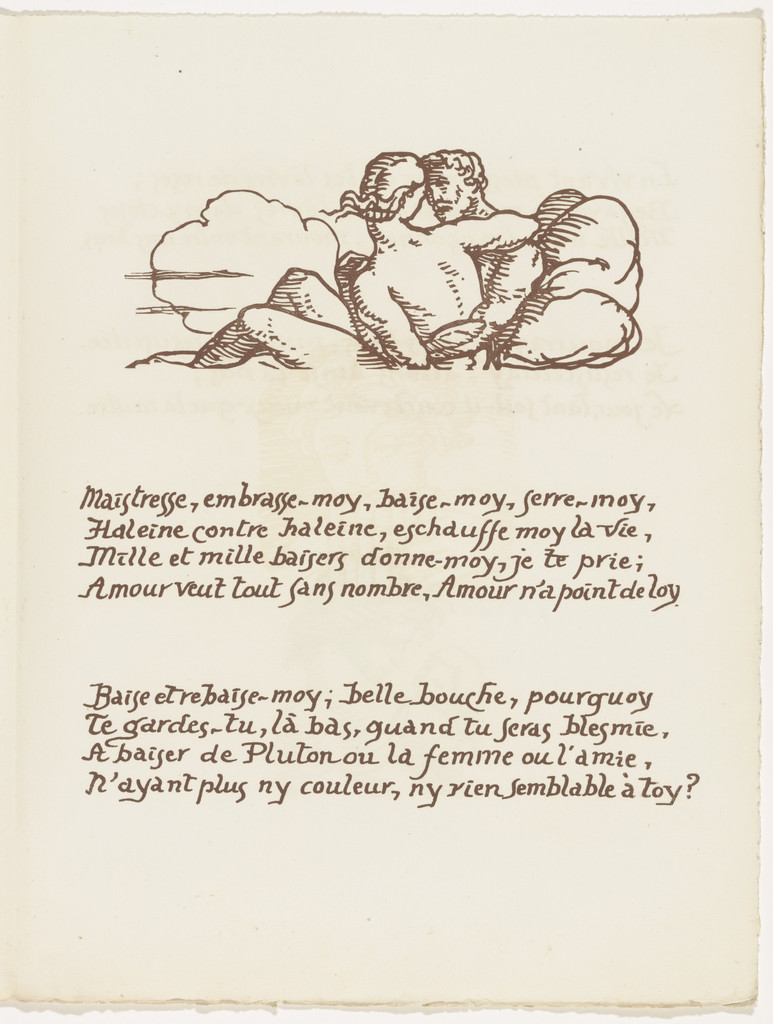 Maistresse, embrasse-moy, baise-moy, serre-moy,
Haleine contre haleine, eschauffe moy la vie,
Mille et mille baisers donne-moy, je te prie;
Amour veut tout sans nombre, Amour n'a point de loy.
Baise et rebaise-moy; belle bouche, pourquoy
Te gardes-tu, là bas, quand tu seras blesmie,
A baiser de Pluton ou la femme ou l'amie,
N'ayant plus ny couleur, ny rien semblable à toy?